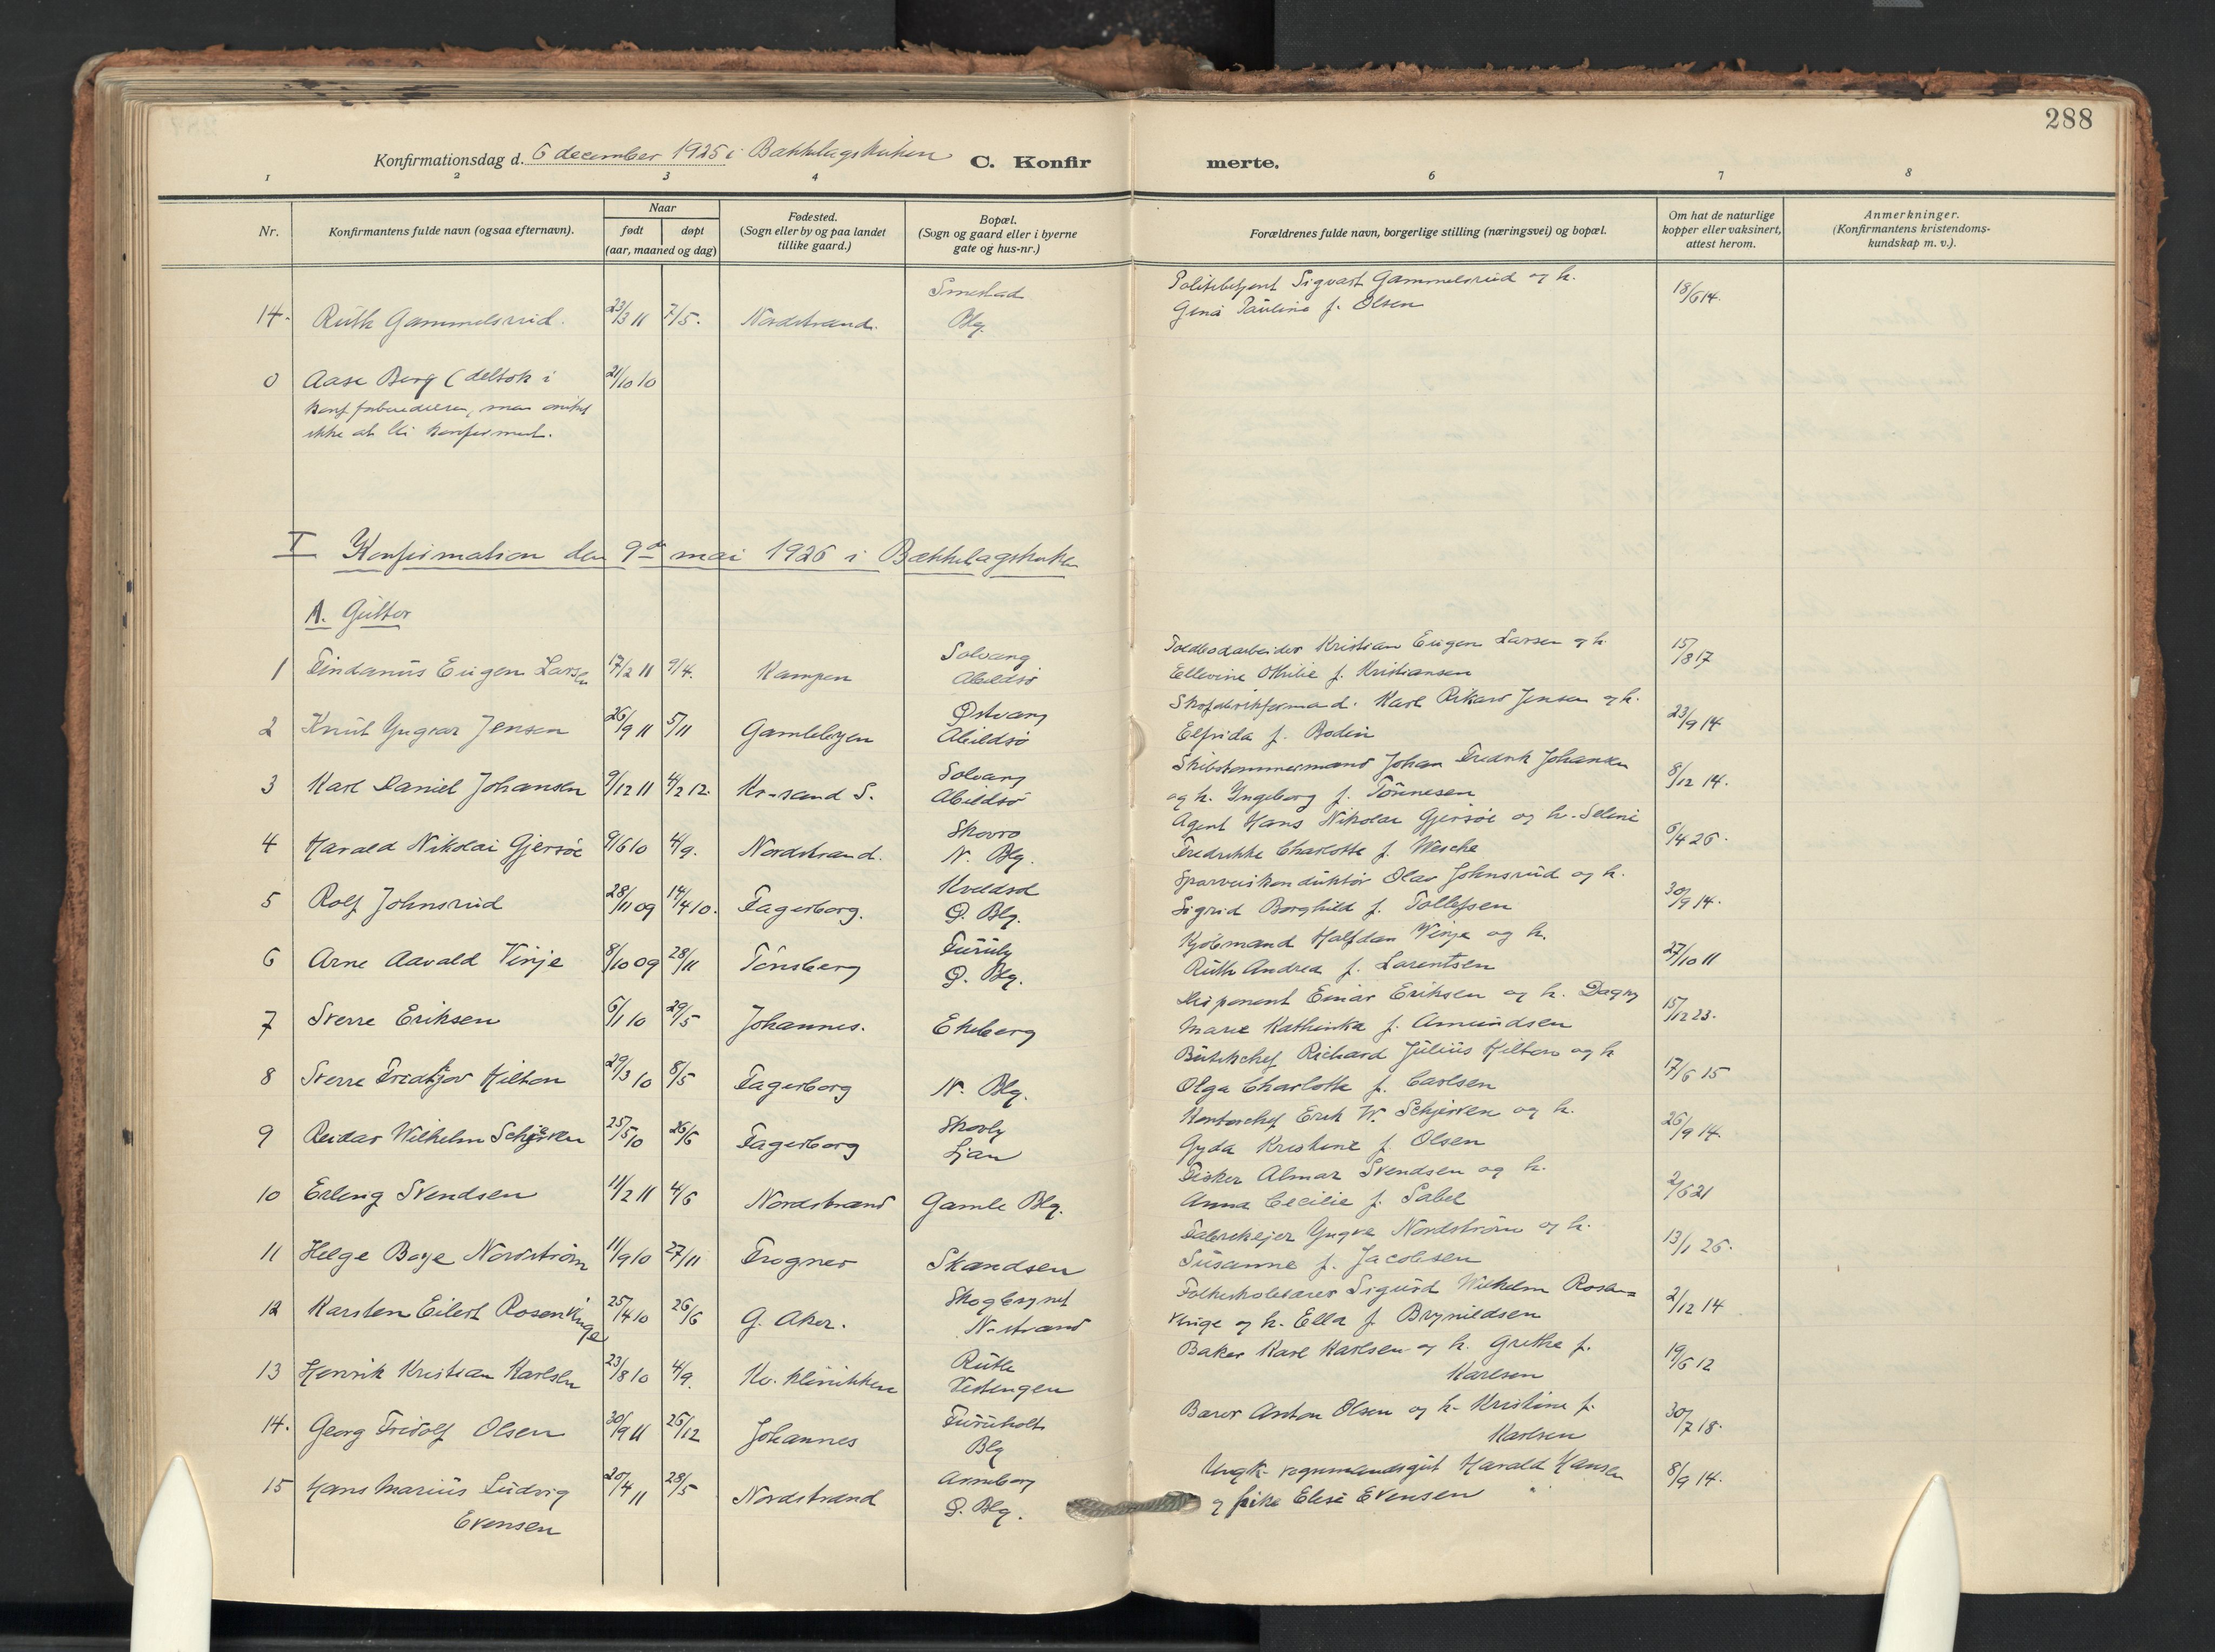 288
Konfirmationsdag d. 6 december 1925 i Bækkelagskirken C. Konfir merte.
1 2 3 4 6 7 8
Nr. Konfirmantens fulde navn (ogsaa efternavn). Naar født døpt (aar, maaned og dag) Fødested. (Sogn eller by og paa landet tillike gaard.) Bopæl. (Sogn og gaard eller i byerne gate og hus-nr.) Forældrenes fulde navn, borgerlige stilling (næringsvei) og bopæl. Om hat de naturlige kopper eller vaksinert, attest herom. Anmerkninger. (Konfirmantens kristendoms-kundskap m. v.).
Smestad Politibetjent Sigvart Gammelsrud og h. 18/6 14.
14. Ruth Gammelsrud. 23/3 11 7/5. Nordstrand. Blg. Gina Pauline f. Olsen
0 Aase Berg (deltok i 21/10 10
konf. forberedelsen, men ønsket
ikke at bli konfirmert.
I Konfirmation den 9de mai 1926 i Bækkelagskirken
A. Gutter
Solvang Toldbodarbeider Kristian Eugen Larsen og h. 15/8 17
1 Findanus Eugen Larsen 17/2 11 9/4. Kampen Abildsø Ellevine Othilie f. Kristiansen
Østvang Skofabrikformand. Karl Rikard Jensen og h. 23/9 14
2 Knut Yngvar Jensen 26/9 11 5/11 Gamlebyen Abildsø Elfrida f. Bodin
Solvang Skibstømmermand Johan Fredrik Johansen 8/12 14.
3 Karl Daniel Johansen 9/12 11 4/2 12. Kr-sand S. Abildsø og h. Ingeborg f. Tönnesen
Skovro Agent Hans Nikolai Gjersøe og h. Seline 6/4 26.
4 Harald Nikolai Gjersøe 9/6 10 4/9. Nordstrand. N. Blg. Fredrikke Charlotte f. Wesche
Kveldsol Sporveiskonduktør Olav Johnsrud og h. 30/9 14.
5 Rolf Johnsrud 28/11 09 14/4 10. Fagerborg. Ø. Blg. Sigrid Borghild f. Tollefsen
Furuly Kjøbmand Halfdan Vinje og h. 27/10 11
6 Arne Aavald Vinje 8/10 09 28/11 Tönsberg Ø. Blg. Ruth Andrea f. Larentsen
Disponent Einar Eriksen og h. Dagny 15/12 23.
7 Sverre Eriksen 6/1 10 29/5 Johannes. Ekeberg Marie Kathinka f. Amundsen
Butikchef Richard Julius Hilton og h 17/6 15
8 Sverre Fredtjov Hilton 29/3 10 8/5 Fagerborg N. Blg. Olga Charlotte f. Carlsen
Skovly Kontorchef Erik W. Schjerven og h. 26/9 14.
9 Reidar Wilhelm Schjerven 25/5 10 26/6 Fagerborg Ljan Gyda Kristine f. Olsen
Fisker Almar Svendsen og h. 2/6 21
10 Erling Svendsen 11/2 11 4/6 Nordstrand Gamle Blg. Anna Cecilie f. Sabel
Fabrikejer Yngve Nordström og h. 13/1 26.
11 Helge Baye Nordström 11/9 10 27/11 Frogner Skandsen Susanne f. Jacobsen
Skogbrynet Folkeskolelærer Sigurd Wilhelm Rosen= 2/12 14
12 Karsten Eilert Rosenkinge 25/4 10 26/6 G. Aker. N-strand Vinge og h. Ella f. Brynildsen
Ruth Baker Karl Karlsen og h. Grethe f. 19/6 12
13 Henrik Kristian Karlsen 23/8 10 4/9. Kv. klinikken Vestengen Karlsen
Furuholt Bærer Anton Olsen og h. Kristine f. 30/7 18.
14. Georg Fridolf Olsen 30/9 11 26/12 Johannes Blg Karlsen
Anneborg Ungk. vognmandsgut Harald Hansen 8/9 14.
15 Hans Marius Ludvig 20/4 11 28/5 Nordstrand Ø. Blg. og pike Elise Evensen
Evensen